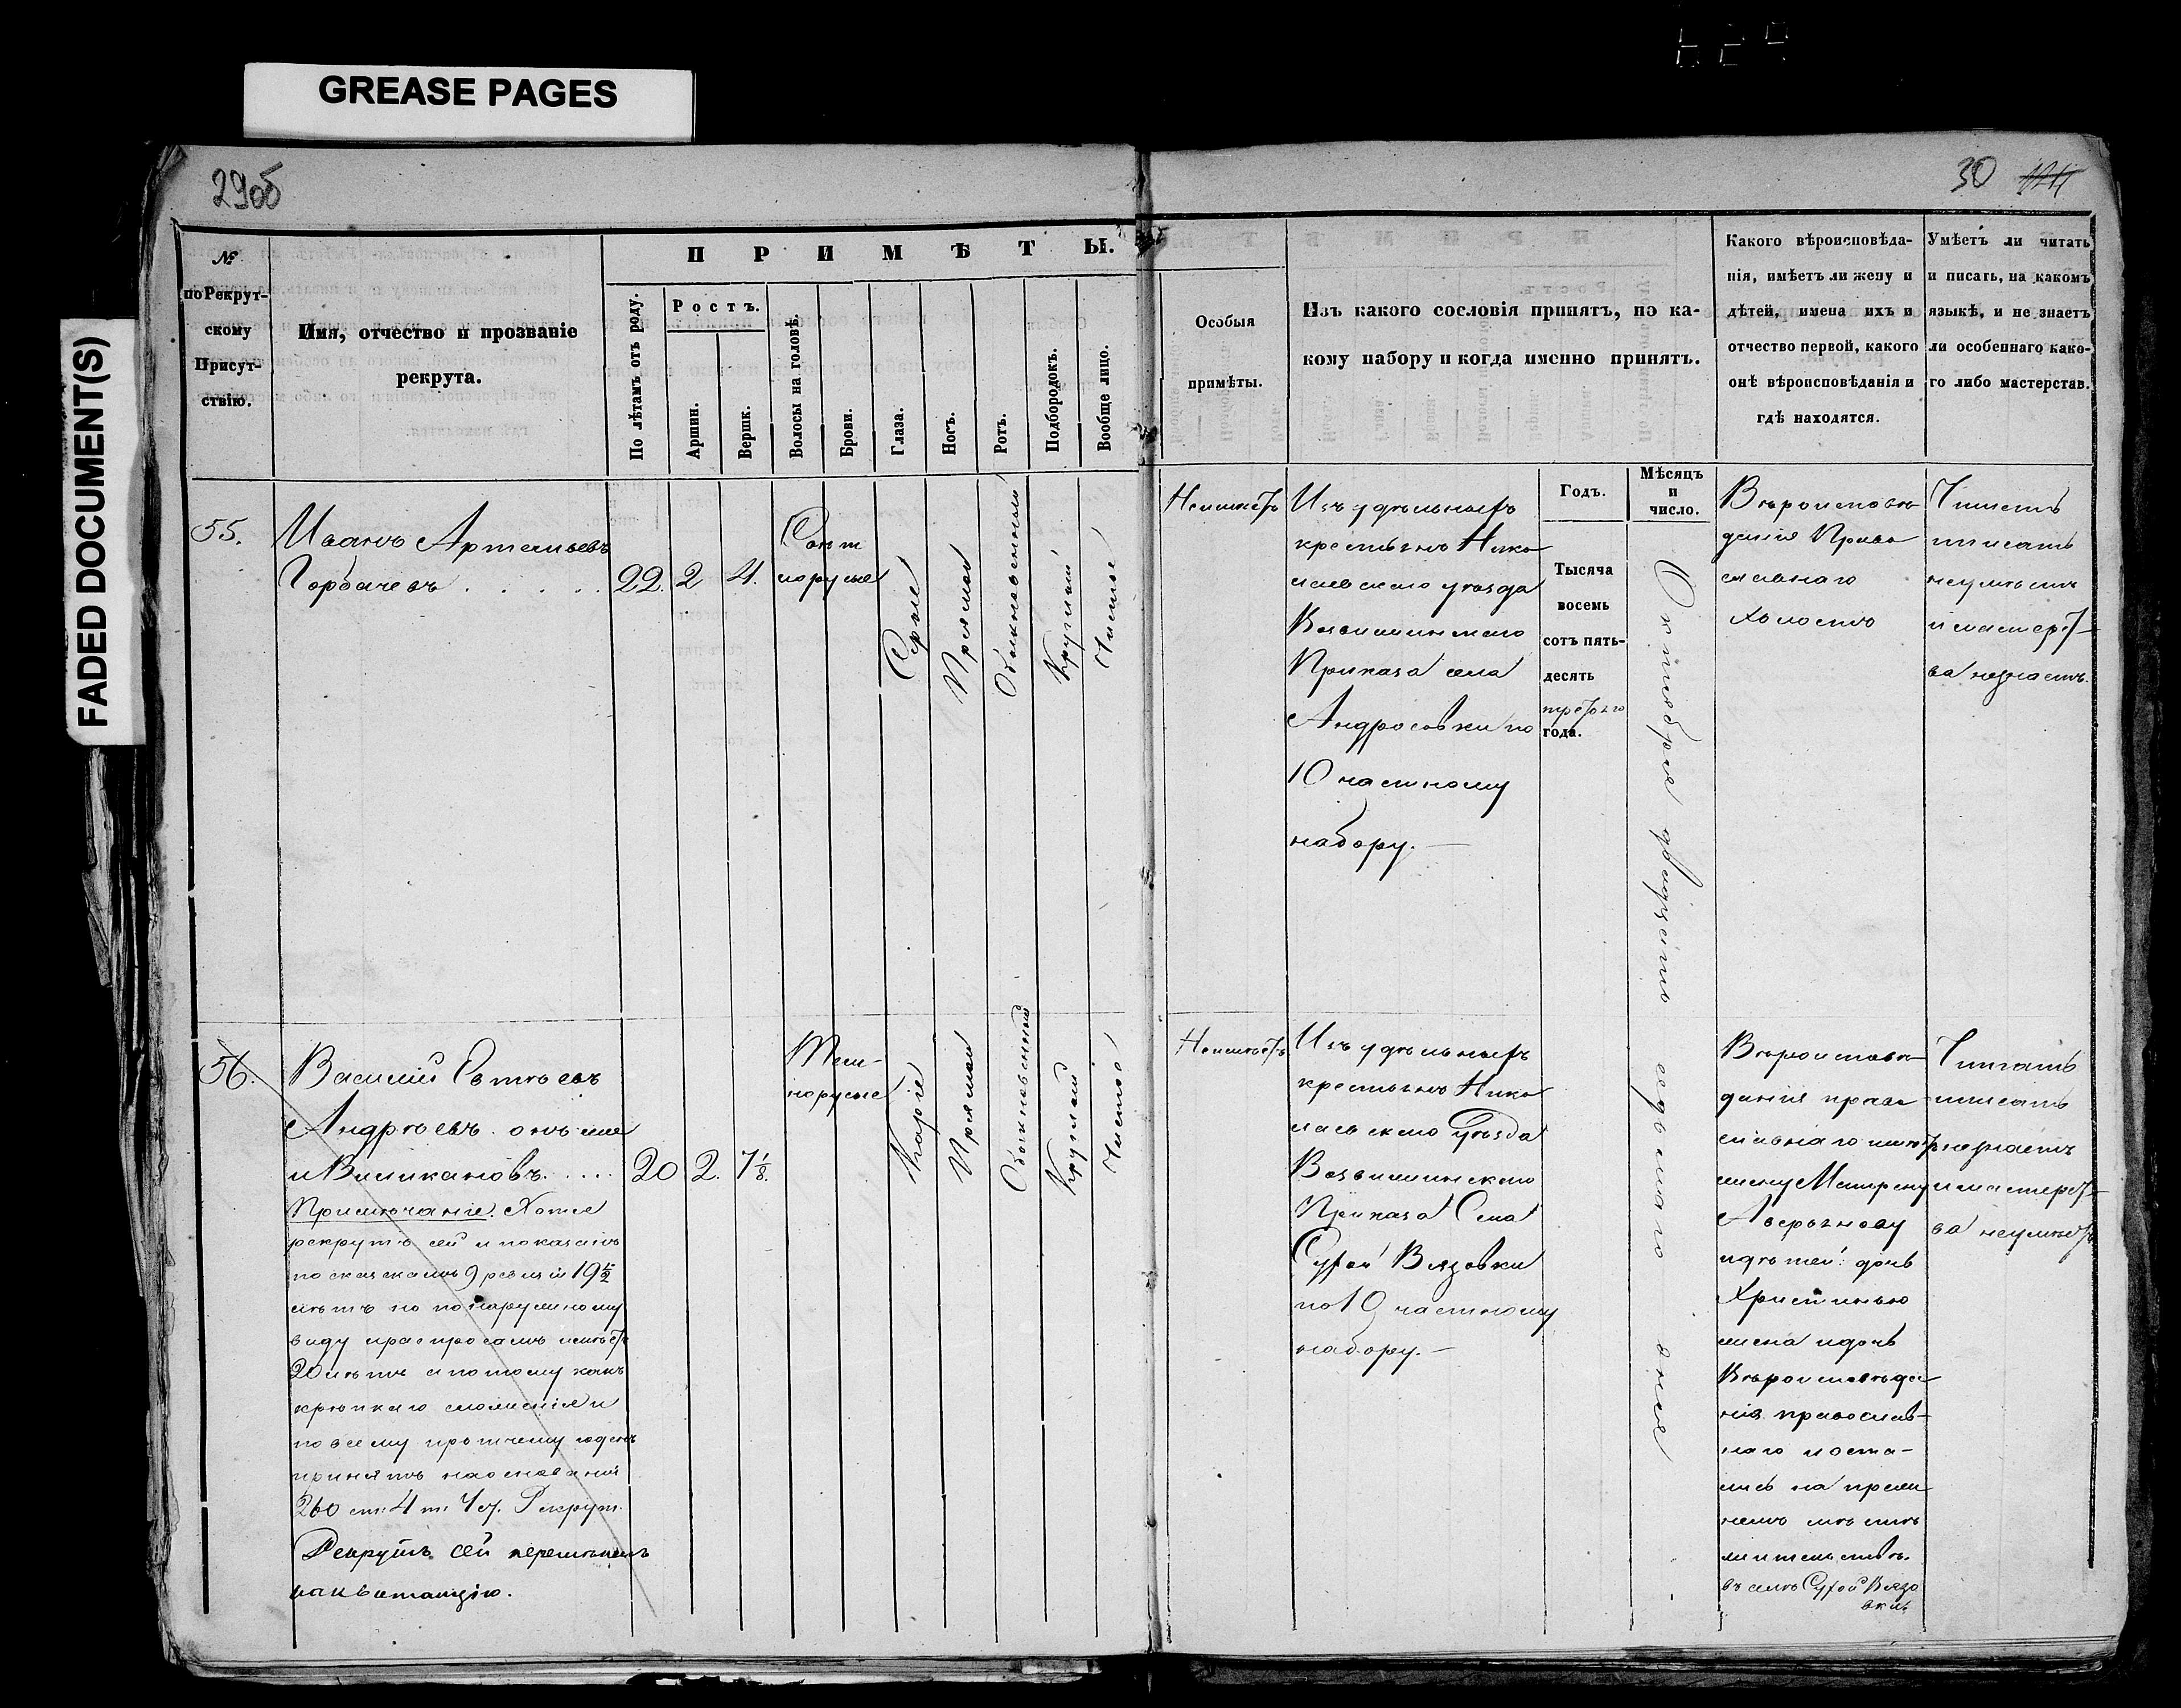 GREASE PAGES
FADED DOCUMENT(S)
29об
30
№ по Рекрут-
скому
Присут-
ствію.
Имя, отчество и прозваніе
рекрута.
ПРИМѢТЫ.
По лѣтамъ отъ роду.
Ростъ.
Аршин.
Вершк.
Волосы на головѣ.
Брови.
Глаза.
Носъ.
Ротъ.
Подбородокъ.
Вообще лицо.
Особыя
примѣты.
Изъ какого сословія принятъ, по ка-
кому набору и когда именно принятъ.
Какого вѣроисповѣда-
нія, имѣетъ ли жену и
дѣтей, имена ихъ и
отчество первой, какого
онѣ вѣроисповѣданія и
гдѣ находятся.
Умѣетъ ли читать
и писать, на какомъ
языкѣ, и не знаетъ
ли особеннаго како-
го либо мастерстав.
55.
Иванъ Артемьевъ
Горбачевъ . . . . .
22.
2
4.
Свѣт
лорусые
Серые
Прямой
Обыкновенный
Круглый
Чистое
Неимѣетъ
Изъ удѣльныхъ
крестьянъ Нико
лаевскаго уѣзда
Приказа села
Андросовки по
10 частному
набору. —
Годъ.
Тысяча
восемь
сотъ пять-
десять
третьяго
года.
Мѣсяцъ
и
число.
Октября двадцать седьмаго дня
Вѣроисповѣ
данія Право
славнаго
холостъ
Читать
писать
неумѣетъ
и мастерст
ва незнаетъ.
56.
Василий Евтѣевъ
Андрѣевъ онъ же
и Великановъ. . . .
20
2.
7 1/8.
Тем-
норусые
Каріе
Прямой
Обыкновенный
Круглый
Чистое
Примѣчаніе. Хотя
рекрутъ сей и показанъ
по сказкамъ 9 ревизіи 19 1/2
лѣтъ но по наружному
виду и распросамъ имѣетъ
20 лѣтъ а потому какъ
крѣпкаго сложенія и
по всему прочему годенъ
принятъ на основаніи
260 ст: 4 т: Уст. Рекрут.
Рекрутъ сей перемѣненъ
на квитанцію.
Неимѣетъ
Изъ удѣльныхъ
крестьянъ Нико
лаевскаго Уѣзда
Приказа Села
Сухой Вязовки
по 10 частному
набору. —
Вѣроисповѣ
данія право
славнаго имѣетъ
жену Матрену
Аверьянову
и дѣтей: дочь
Христинью
жена и дочь
Вѣроисповѣда
нія православ-
наго и оста-
лись на преж
немъ мѣстѣ
жительства.
въ селѣ Сухой Вязо
вки.
Читать
писать
незнаетъ
и мастерст
ва неумѣетъ